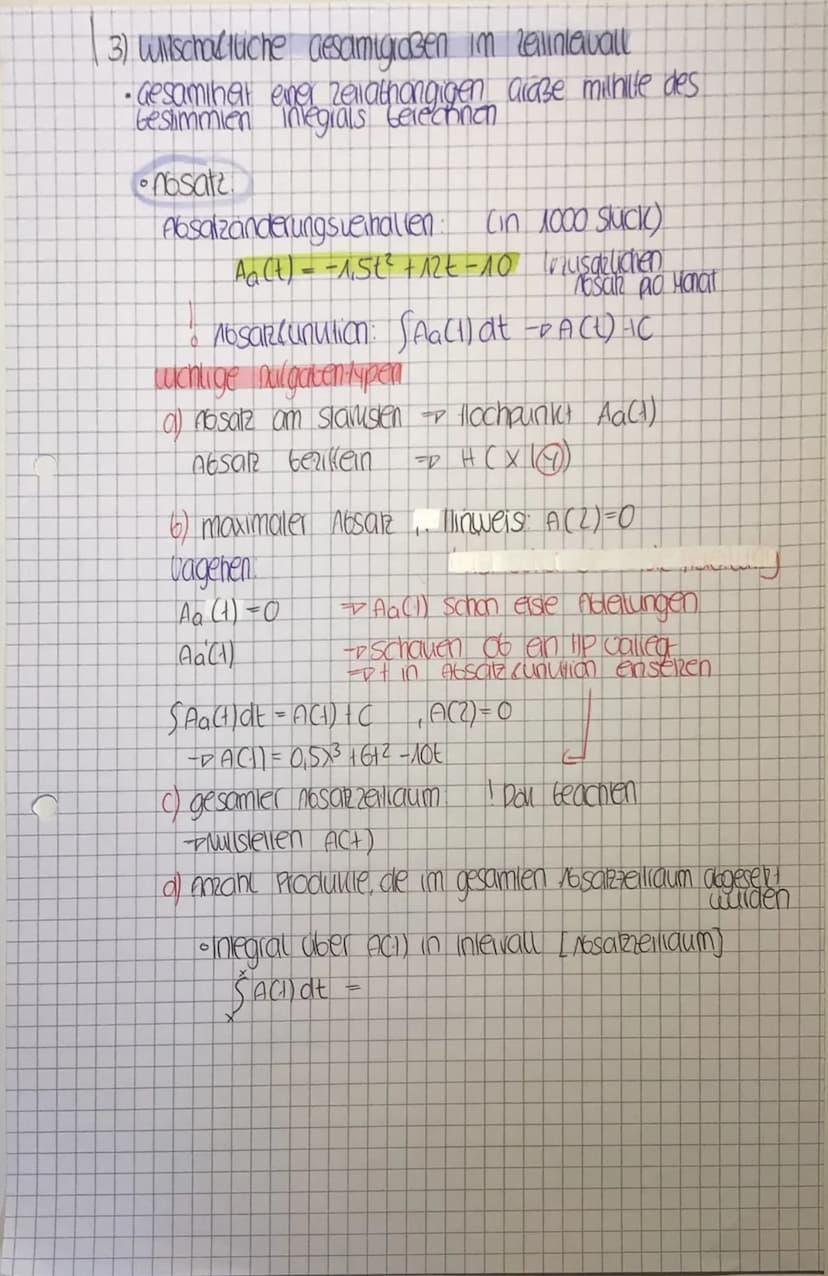 3) Wirtschaftliche Gesamtgrößen im Zeitintervall
• Gesamtheit einer zeitabhängigen Größe mithilfe des
bestimmten Integrals berechnen
• Absatz:
Absatzänderungsverhalten: (in 1000 Stück)
Aa(t) = -1,5t² + 12t - 10 zusätzlichen
Absatz pro Monat
! Absatzfunktion: ∫Aa(t) dt → A(t) + C
wichtige Aufgabentypen
a) Absatz am stärksten → Hochpunkt Aa(t)
Absatz beziffern ⇒ H(x|y)
b) maximaler Absatz Hinweis: A(2)=0
Vorgehen:
Aa(t) = 0 → Aa(t) schon erste Ableitungen
Aa'(t) → schauen ob ein HP vorliegt
→ t in Absatzfunktion einsetzen
∫Aa(t)dt = A(t) + C , A(2) = 0
→ A(t) = 0,5x³ + 6t² - 10t
c) gesamter Absatzzeitraum ! beachten
→ Nullstellen A(t)
d) Anzahl Produkte, die im gesamten Absatzzeitraum abgesetzt
wurden
• Integral über A(t) in Intervall [Absatzzeitraum]
∫ₓˣ A(t) dt =